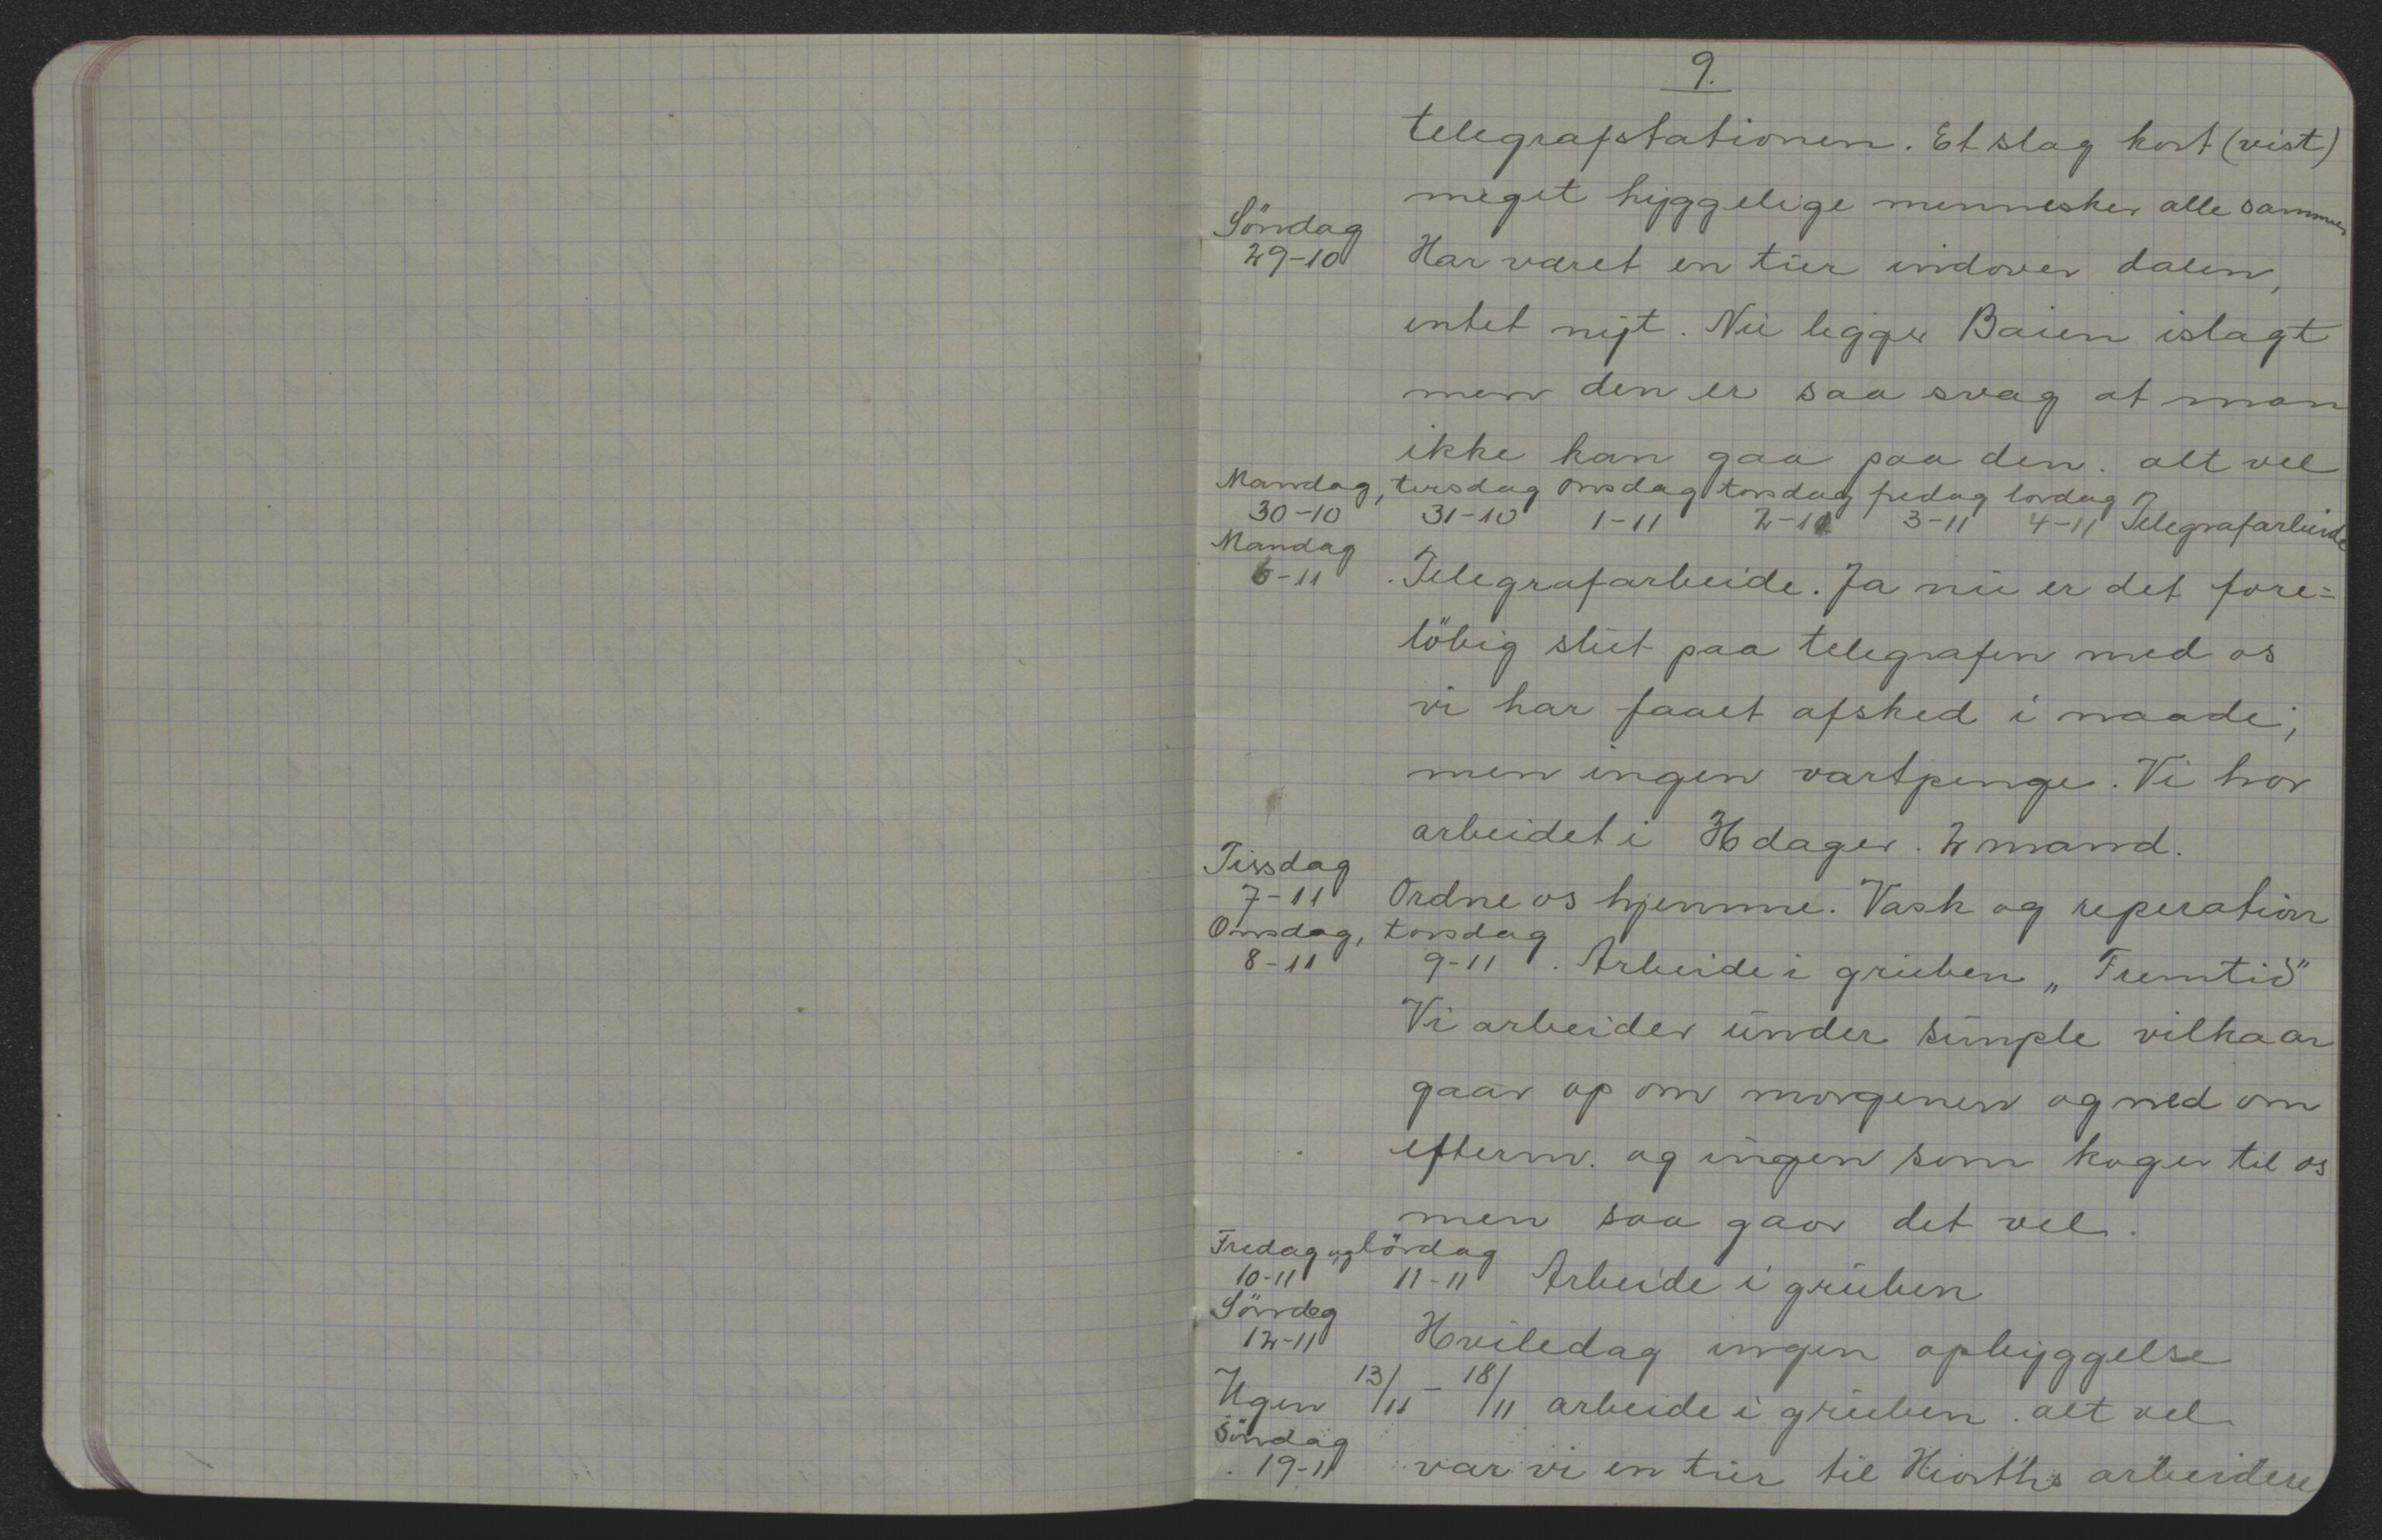 9.
telegrafstationen. Et slag kort (vist)
meget hyggelige mennesker alle sammen
Söndag
29-10 Har været en tur indover dalen,
intet nyt. Nu ligger Baien islagt
men den er saa svag at man
ikke kan gaa paa den. alt vel
Mandag, tirsdag onsdag torsdag fredag lördag
30-10 31-10 1-11 2-11 3-11 4-11 Telegrafarbeide
Mandag
6-11 . Telegrafarbeide. Ja nu er det fore=
löbig slut paa telegrafen med os
vi har faaet afsked i naade;
men ingen vartpenge. Vi har
arbeidet i dager. 2 mand.
Tissdag
7-11 Ordne os hjemme. Vask og reperation
Onsdag, torsdag
8-11 9-11 . Arbeide i gruben „Fremtid"
Vi arbeider under simple vilkaar
gaar op om morgenen og ned om
efterm. og ingen som koger til os
men saa gaar det vel.
Fredag og lördag
10-11 11-11 Arbeide i gruben
Söndag
12-11 Hviledag ingen opbyggelse
Ugen 13/11 - 18/11 arbeide i gruben. alt vel
Söndag
19-11 var vi en tur til Hiorths arbeidere